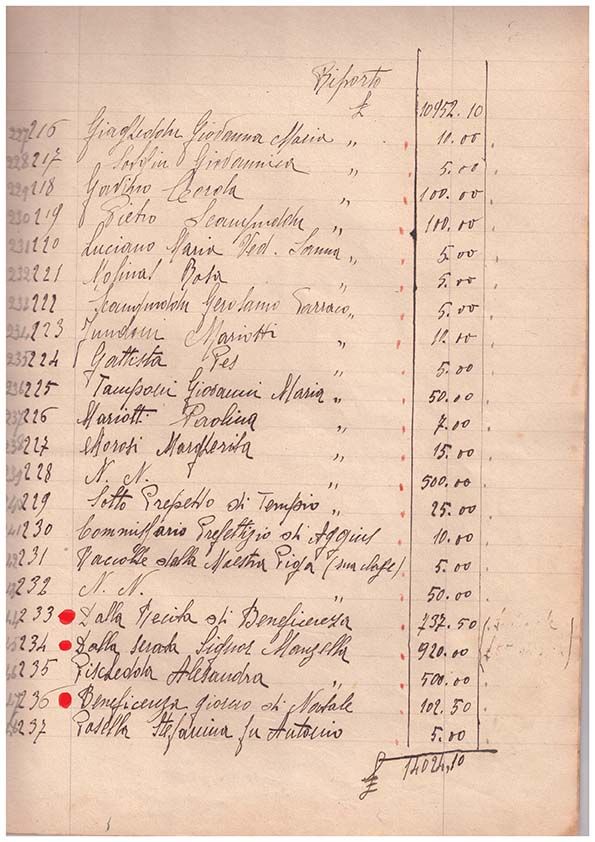 Riporto
£ 10952.10
227 216 Giagheddu Giovanna Maria „ 10.00
228 217 Giovannica „ 5.00
229 218 Gavino „ 100.00
230 219 Pietro „ 100.00
231 220 Luciano Maria Ved. Sanna „ 5.00
232 221 Molinas Rosa „ 5.00
233 222 Gerolamo „ 5.00
234 223 Mariotti „ 10.00
235 224 Gattista Pes „ 5.00
236 225 Tamponi Giovanni Maria „ 50.00
237 226 Mariotti Paolina „ 7.00
238 227 Morosi Margherita „ 15.00
239 228 N. N. „ 500.00
240 229 Sotto Prefetto di Tempio „ 25.00
41 230 Commissario Prefettizio di Aggius 10.00
231 Raccolte dalla Maestra Piga (sua classe) 5.00
232 N. N. „ 50.00
233 Dalla Recita di Beneficenza 737.50
234 Dalla serata Signor Manzella 920.00
235 Pischedda Alesandra „ 500.00
236 Beneficenza giorno di Natale 102.50
237 Posella Stefanina fu Antonio 5.00
£ 14024,10